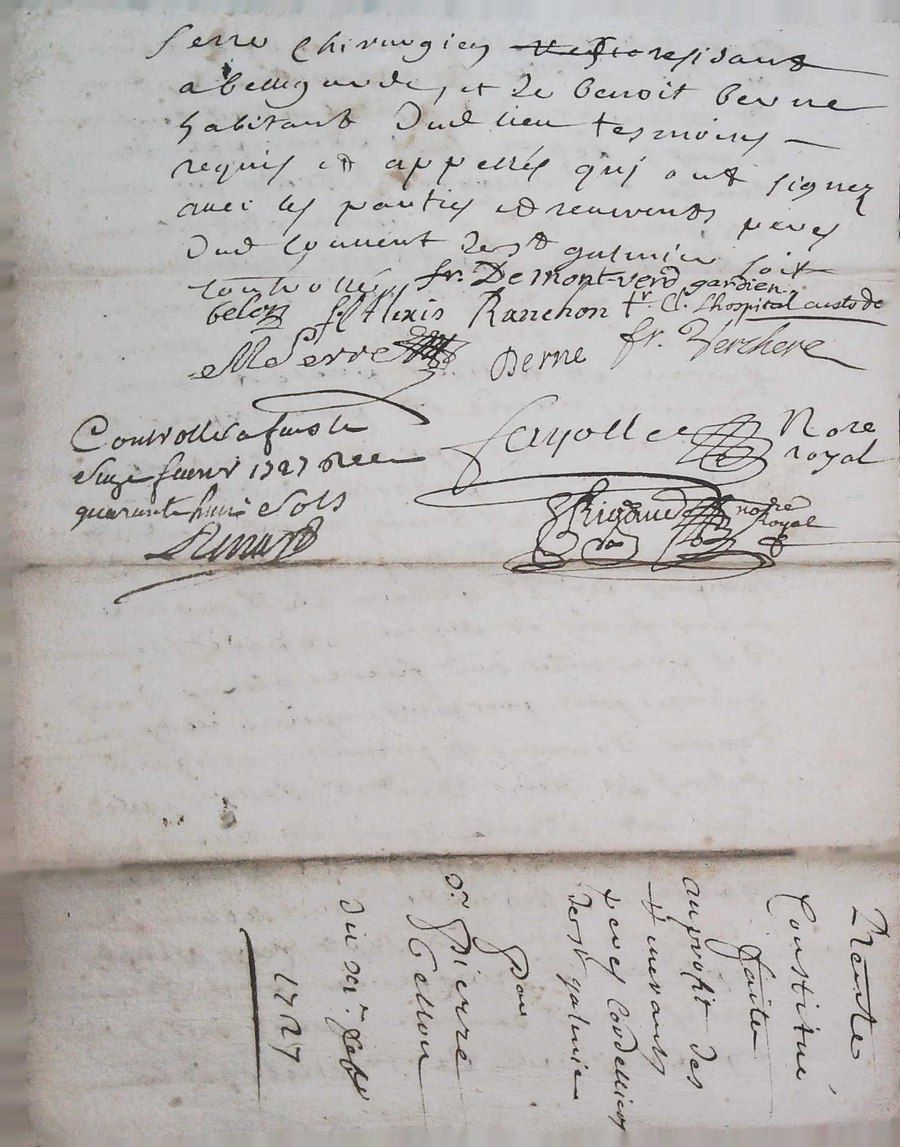 Serre Chirurgien residant
a bellegarde, et de benoit berne
habitant dud lieu tesmoins
requis et appellés qui ont signez
avec les parties et reverends peres
dud Couvent de st galmier soit
controllé, fr. Demontverd gardien
belon f. Alexis Ranchon fr. C. Lhospital custode
M Serre Berne fr. Verchere
Controllé a
Fayolle Nore
royal
seize fevrier 1727 Receu
quarante huit sols
Rigaud notre
Royal
Rente
Constitué
faite
au profit des
reverants
peres Cordeliers
de st galmier
par
sr. pierre
Bellon
du 10r. feb
1727